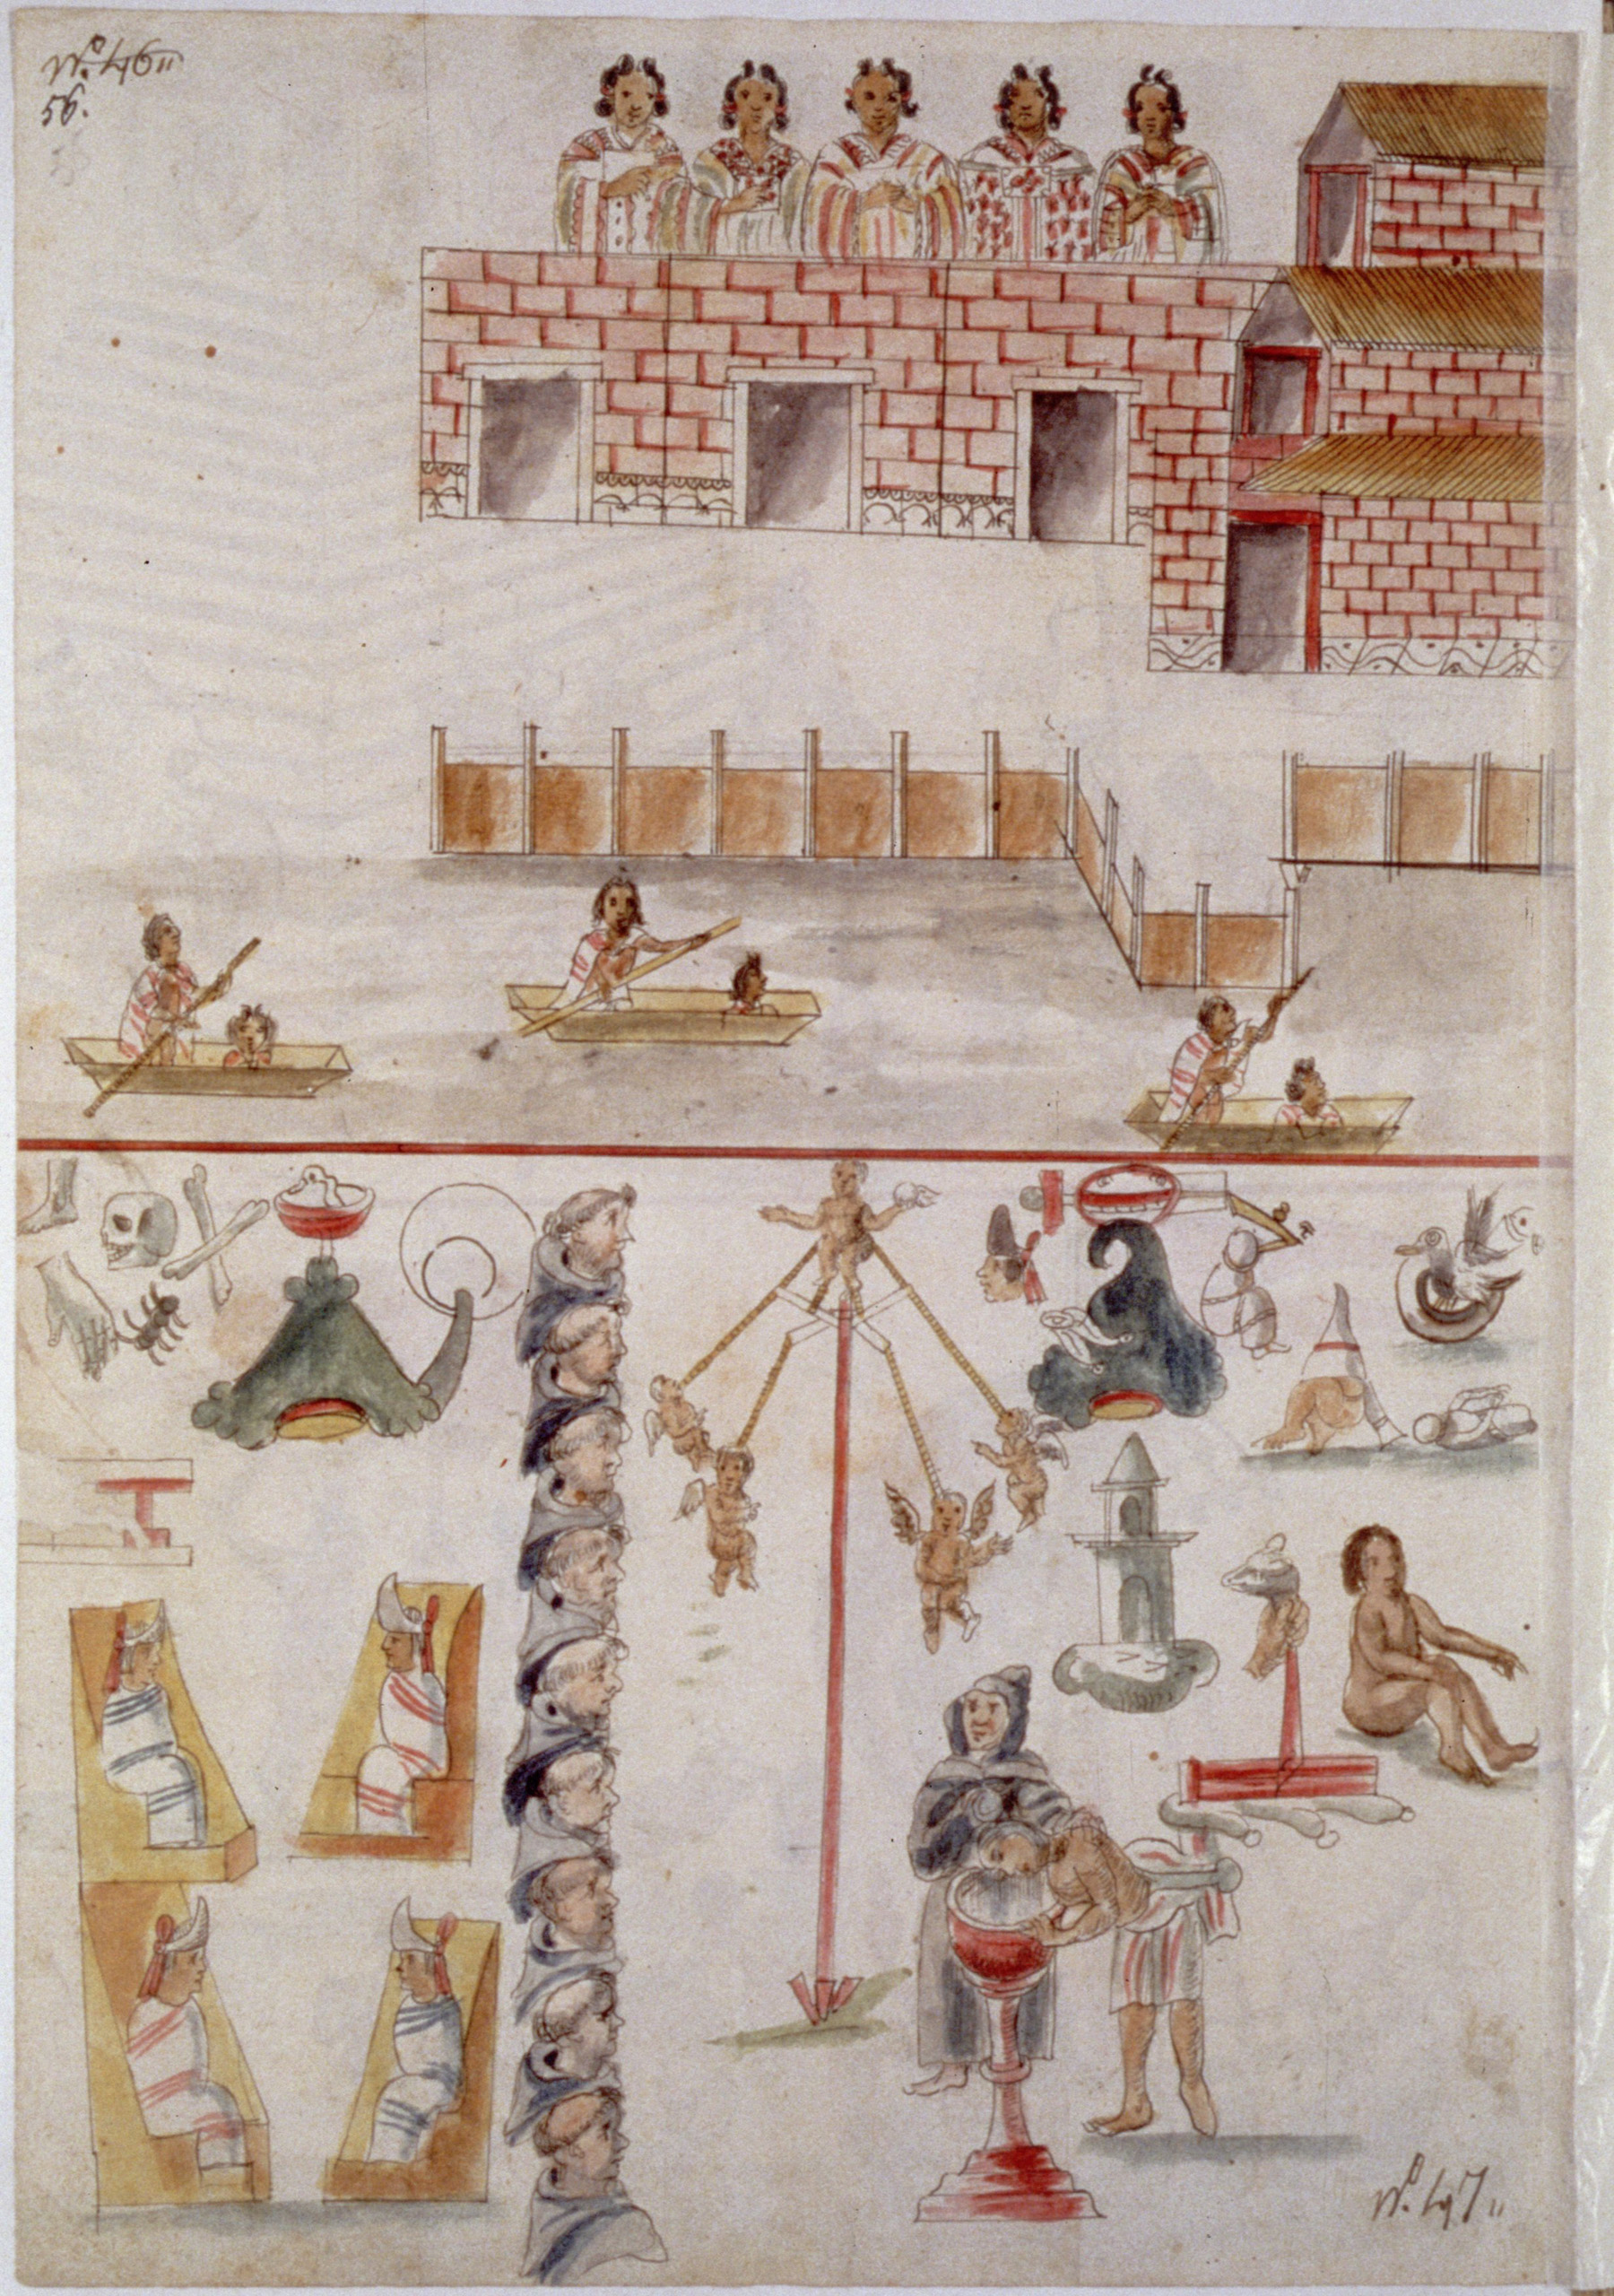 Nº. 46 "
56.
Nº. 47 "